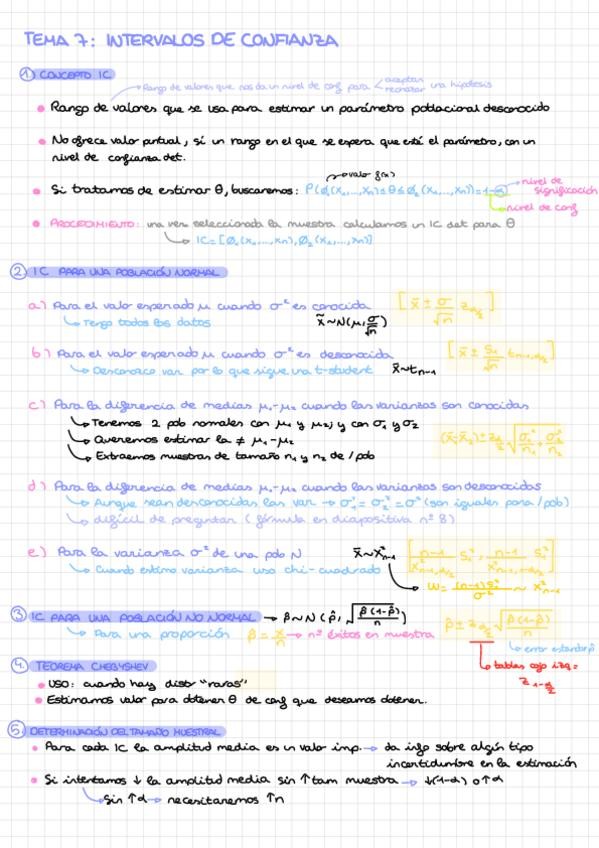 TEMA 7: INTERVALOS DE CONFIANZA
① CONCEPTO IC
→ Rango de valores que nos da un nivel de conf para < aceptar rechazar una hipótesis
• Rango de valores que se usa para estimar un parámetro poblacional desconocido
• No ofrece valor puntual, sí un rango en el que se espera que esté el parámetro, con un
nivel de confianza det.
→ valor f(x)
• Si tratamos de estimar θ, buscaremos: P(∅₁(x₁,...,xn) ≤ θ ≤ ∅₂(x₁,...,xn)) = 1-α → nivel de significación
→ nivel de conf
• PROCEDIMIENTO: una vez seleccionada la muestra calculamos un IC det para θ
↳ IC = [∅₁(x₁,...,xn), ∅₂(x₁,...,xn)]
② IC PARA UNA POBLACIÓN NORMAL
a) Para el valor esperado μ cuando σ² es conocida [x̄ ± σ/√n z α/2]
↳ Tengo todos los datos x̄ ~ N(μ, σ/√n)
b) Para el valor esperado μ cuando σ² es desconocida [x̄ ± S₁/√n t n-1, α/2]
↳ Desconozco var por lo que sigue una t-student x̄ ~ t n-1
c) Para la diferencia de medias μ₁-μ₂ cuando las varianzas son conocidas
↳ Tenemos 2 pob normales con μ₁ y μ₂; y con σ₁ y σ₂
↳ Queremos estimar la ≠ μ₁-μ₂ (x̄₁-x̄₂) ± z α/2 √σ₁²/n₁ + σ₂²/n₂
↳ Extraemos muestras de tamaño n₁ y n₂ de / pob
d) Para la diferencia de medias μ₁-μ₂ cuando las varianzas son desconocidas
↳ Aunque sean desconocidas las var → σ₁² = σ₂² = σ² (son iguales para / pob)
↳ difícil de preguntar (fórmula en diapositiva nº 8)
e) Para la varianza σ² de una pob N x̄ ~ χ² n-1 [n-1/χ² n-1, α/2 S₁², n-1/χ² n-1, 1-α/2 S₁²]
↳ Cuando estimo varianza uso chi-cuadrado ↳ W = (n-1)S₁²/σ² ~ χ² n-1
③ IC PARA UNA POBLACIÓN NO NORMAL → p̂ ~ N(p̂, √p̂(1-p̂)/n) p̂ ± z α/2 √p̂(1-p̂)/n
↳ Para una proporción p̂ = x/n → nº éxitos en muestra ↳ error estandar p̂
↳ tablas cojo izq = z 1-α/2
④ TEOREMA CHEBYSHEV
• USO: cuando hay distr "raras"
• Estimamos valor para obtener θ de conf que deseamos obtener.
⑤ DETERMINACIÓN DEL TAMAÑO MUESTRAL
• Para cada IC la amplitud media es un valor imp. → da info sobre algún tipo
incertidumbre en la estimación
• Si intentamos ↓ la amplitud media sin ↑ tam muestra → ↓(1-α) o ↑α
↳ Sin ↑α → necesitaremos ↑n